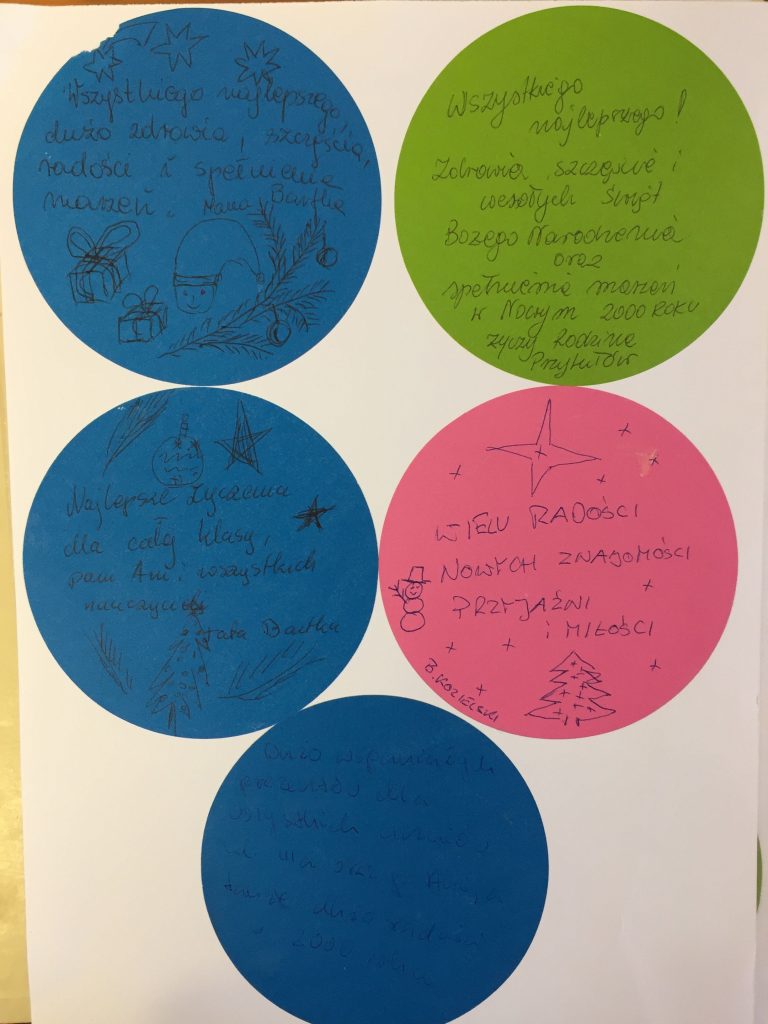 Wszystkiego najlepszego,
dużo zdrowia, szczęścia,
radości i spełnienia
marzeń. Mama Bartka
Wszystkiego
najlepszego!
Zdrowia, szczęście i
wesołych Świąt
Bożego Narodzenia
oraz
spełnienia marzeń
w Nowym 2000 ROKU
życzy Rodzina
Przytułów
Najlepsze życzenia
dla całej klasy,
pani Ani i wszystkich
nauczycieli
Tata Bartka
WIELU RADOŚCI
NOWYCH ZNAJOMOŚCI
PRZYJAŹNI
i MIŁOŚCI
B. KOZIELSKI
Dużo wspaniałych
dla
wszystkich
oraz
dużo radości
w 2000 roku